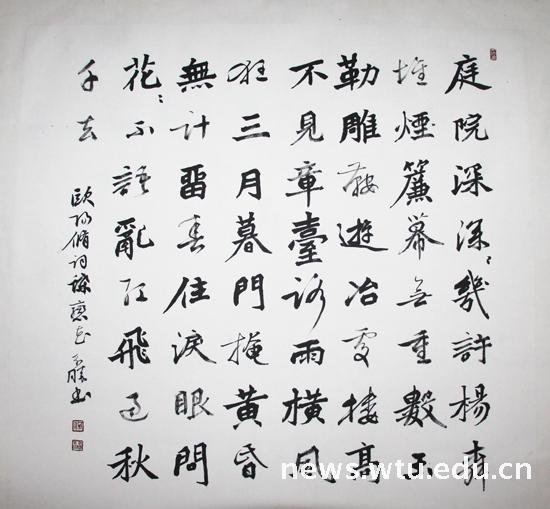 庭院深深〻幾許楊柳
堆煙簾幕无重數玉
勒雕鞍遊冶處樓高
不見章臺路雨橫風
狂三月暮門掩黃昏
無計畱春住淚眼問
花〻不語亂紅飛過秋
千去
歐陽脩詞蝶戀花 勝書
news.wtu.edu.cn